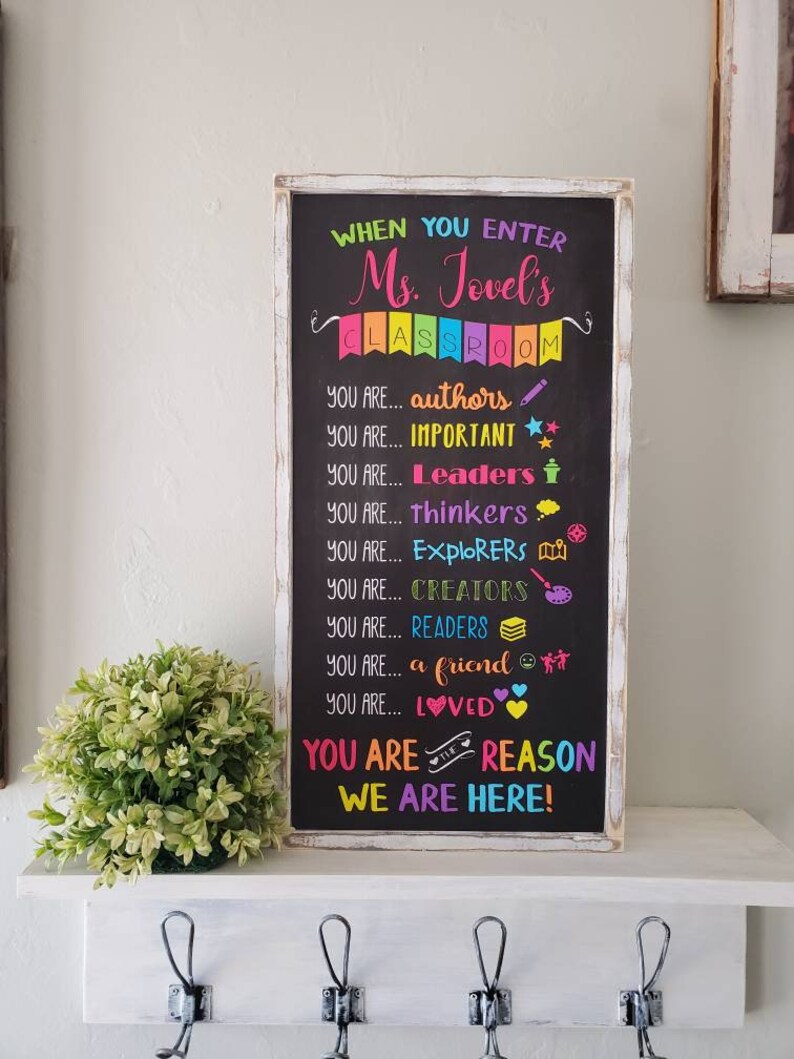 WHEN YOU ENTER
Ms. Jovel's
CLASSROOM
YOU ARE... authors
YOU ARE... IMPORTANT
YOU ARE... Leaders
YOU ARE... thinkers
YOU ARE... EXPLORERS
YOU ARE... CREATORS
YOU ARE... READERS
YOU ARE... a friend
YOU ARE... LOVED
YOU ARE THE REASON
WE ARE HERE!